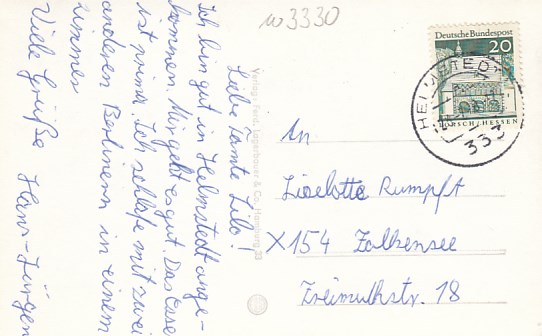 w 3330
Deutsche Bundespost
20
LORSCH/HESSEN
HELMSTEDT
333
Liebe Tante Lilo!
Ich bin gut in Helmstedt ange-
kommen. Mir geht es gut. Das Essen
ist prima. Ich schlafe mit zwei
anderen Berlinern in einem
Zimmer
Viele Grüße Hans-Jürgen
Verlag Ferd. Lagerbauer & Co., Hamburg 33
An
Lieselotte Rumpft
X154 Falkensee
Freimuthstr. 18